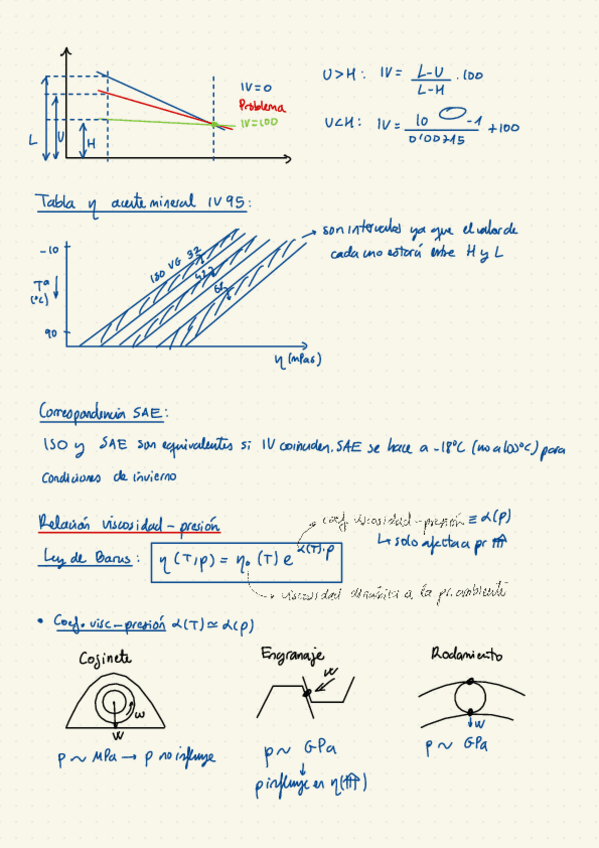 IV=0
Problema
IV=100
L U H
U>H: IV = L-U / L-H · 100
U<H: IV = 10 -1 / 0'00715 + 100
Tabla η aceite mineral IV 95:
son intervalos ya que el valor de
cada uno estará entre H y L
-10
ISO VG 32
Tª
(°C)
90
η (mPas)
Correspondencia SAE:
ISO y SAE son equivalentes si IV coinciden. SAE se hace a -18°C (no a 100°C) para
condiciones de invierno
Relación viscosidad-presión
coef viscosidad-presión ≡ α(p)
↳ solo afecta a pr ⇈
Ley de Barus: η(T,p) = η₀(T) e^α(T)·p
viscosidad dinámica a la pr. ambiente
• Coef. visc-presión α(T) ≃ α(p)
Cojinete Engranaje Rodamiento
W
ω
W
W
p ~ MPa → p no influye
p ~ GPa
p ~ GPa
p influye en η(⇈)